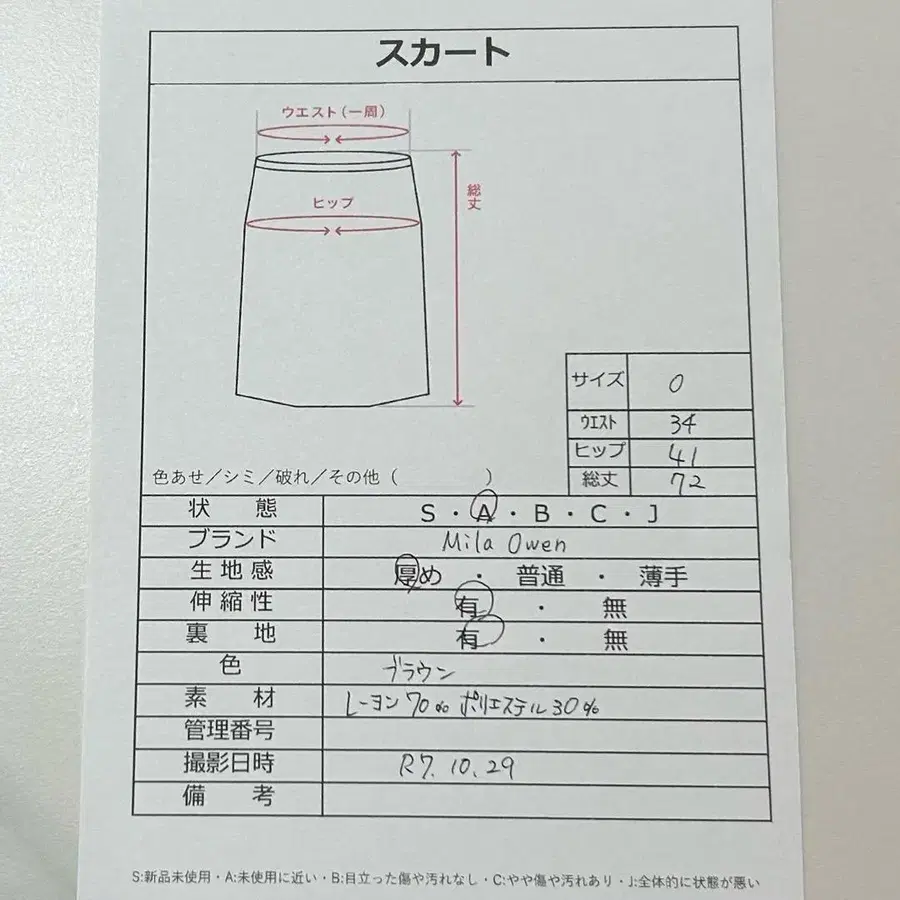 スカート
ウエスト(一周)
総丈
ヒップ
サイズ 0
ウエスト 34
ヒップ 41
総丈 72
色あせ／シミ／破れ／その他（　　　　）
状態 S・A・B・C・J
ブランド Mila Owen
生地感 厚め・普通・薄手
伸縮性 有・無
裏地 有・無
色 ブラウン
素材 レーヨン70% ポリエステル30%
管理番号
撮影日時 R7.10.29
備考
S:新品未使用・A:未使用に近い・B:目立った傷や汚れなし・C:やや傷や汚れあり・J:全体的に状態が悪い